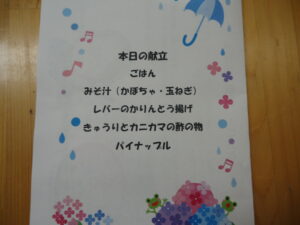 本日の献立
ごはん
みそ汁（かぼちゃ・玉ねぎ）
レバーのかりんとう揚げ
きゅうりとカニカマの酢の物
パイナップル